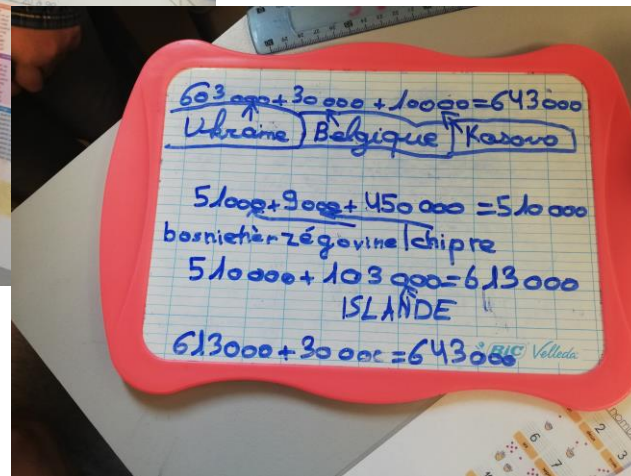 603000+30000+10000=643000
Ukraine Belgique Kasovo
51000+9000+450000=510000
bosnietièrzégovine chipre
510000+103000=613000
ISLANDE
613000+30000=643000
BIC Velleda